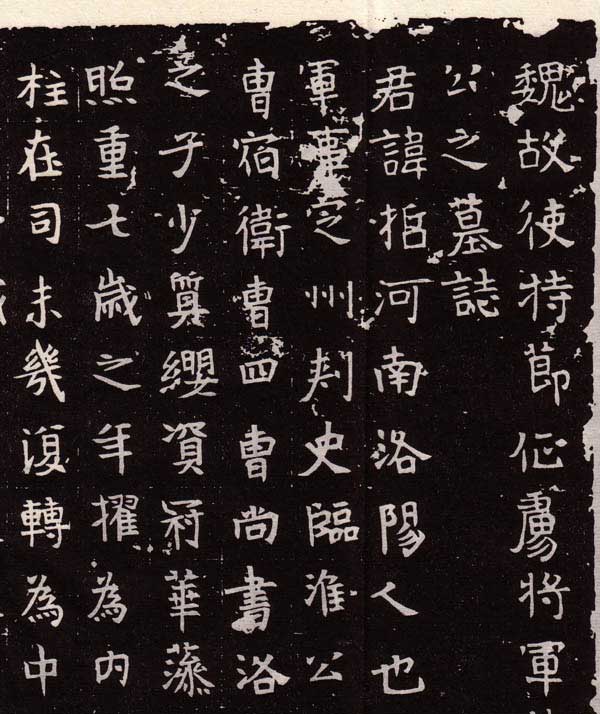 魏故使持節征虜將軍
公之墓誌
君諱括河南洛陽人也
軍事定州刾史臨淮公
曹宿衛曹四曹尚書洛
之子少篡纓資冠華蔭
照重七歲之年擢為內
柱在司未幾復轉為中